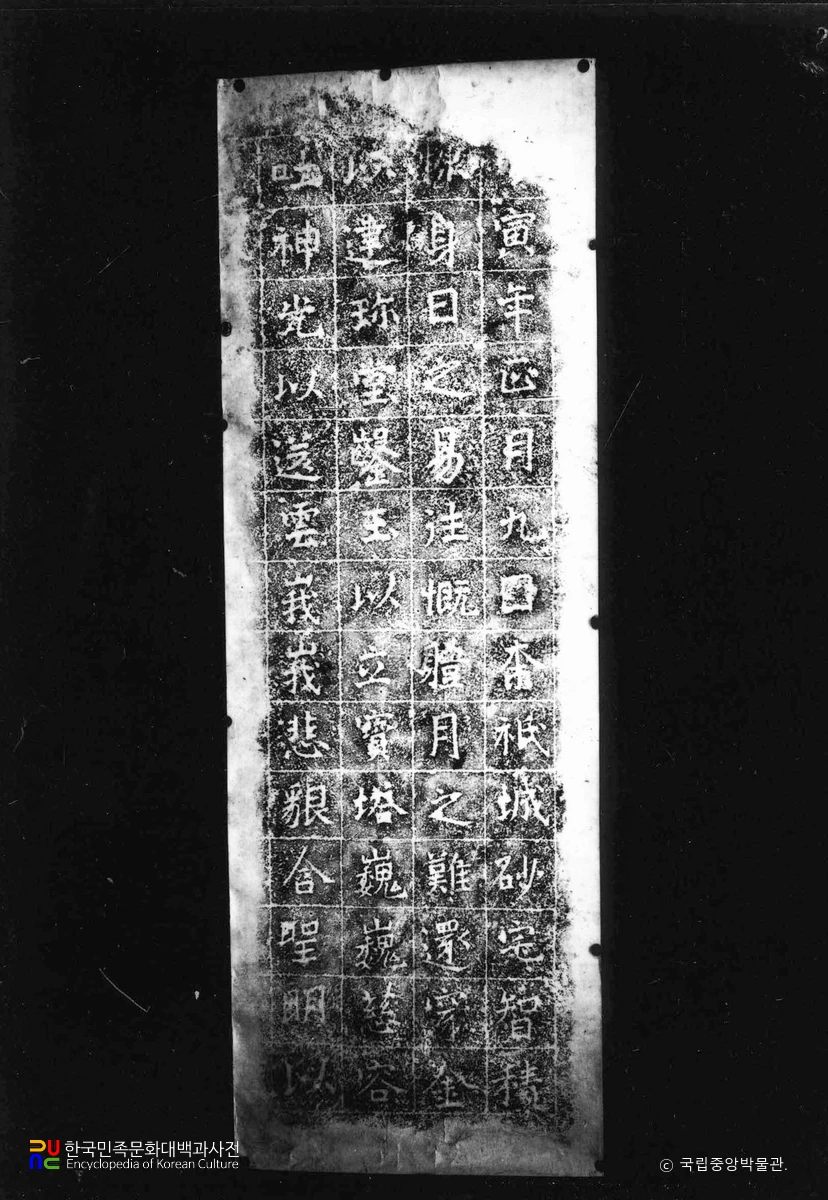 寅年正月九日奈祇城砂宅智積
慷身日之易往慨體月之難還穿金
以建珍堂鑿玉以立寶塔巍巍慈容
吐神光以送雲峩峩悲貌含聖明以
한국민족문화대백과사전
Encyclopedia of Korean Culture
© 국립중앙박물관.